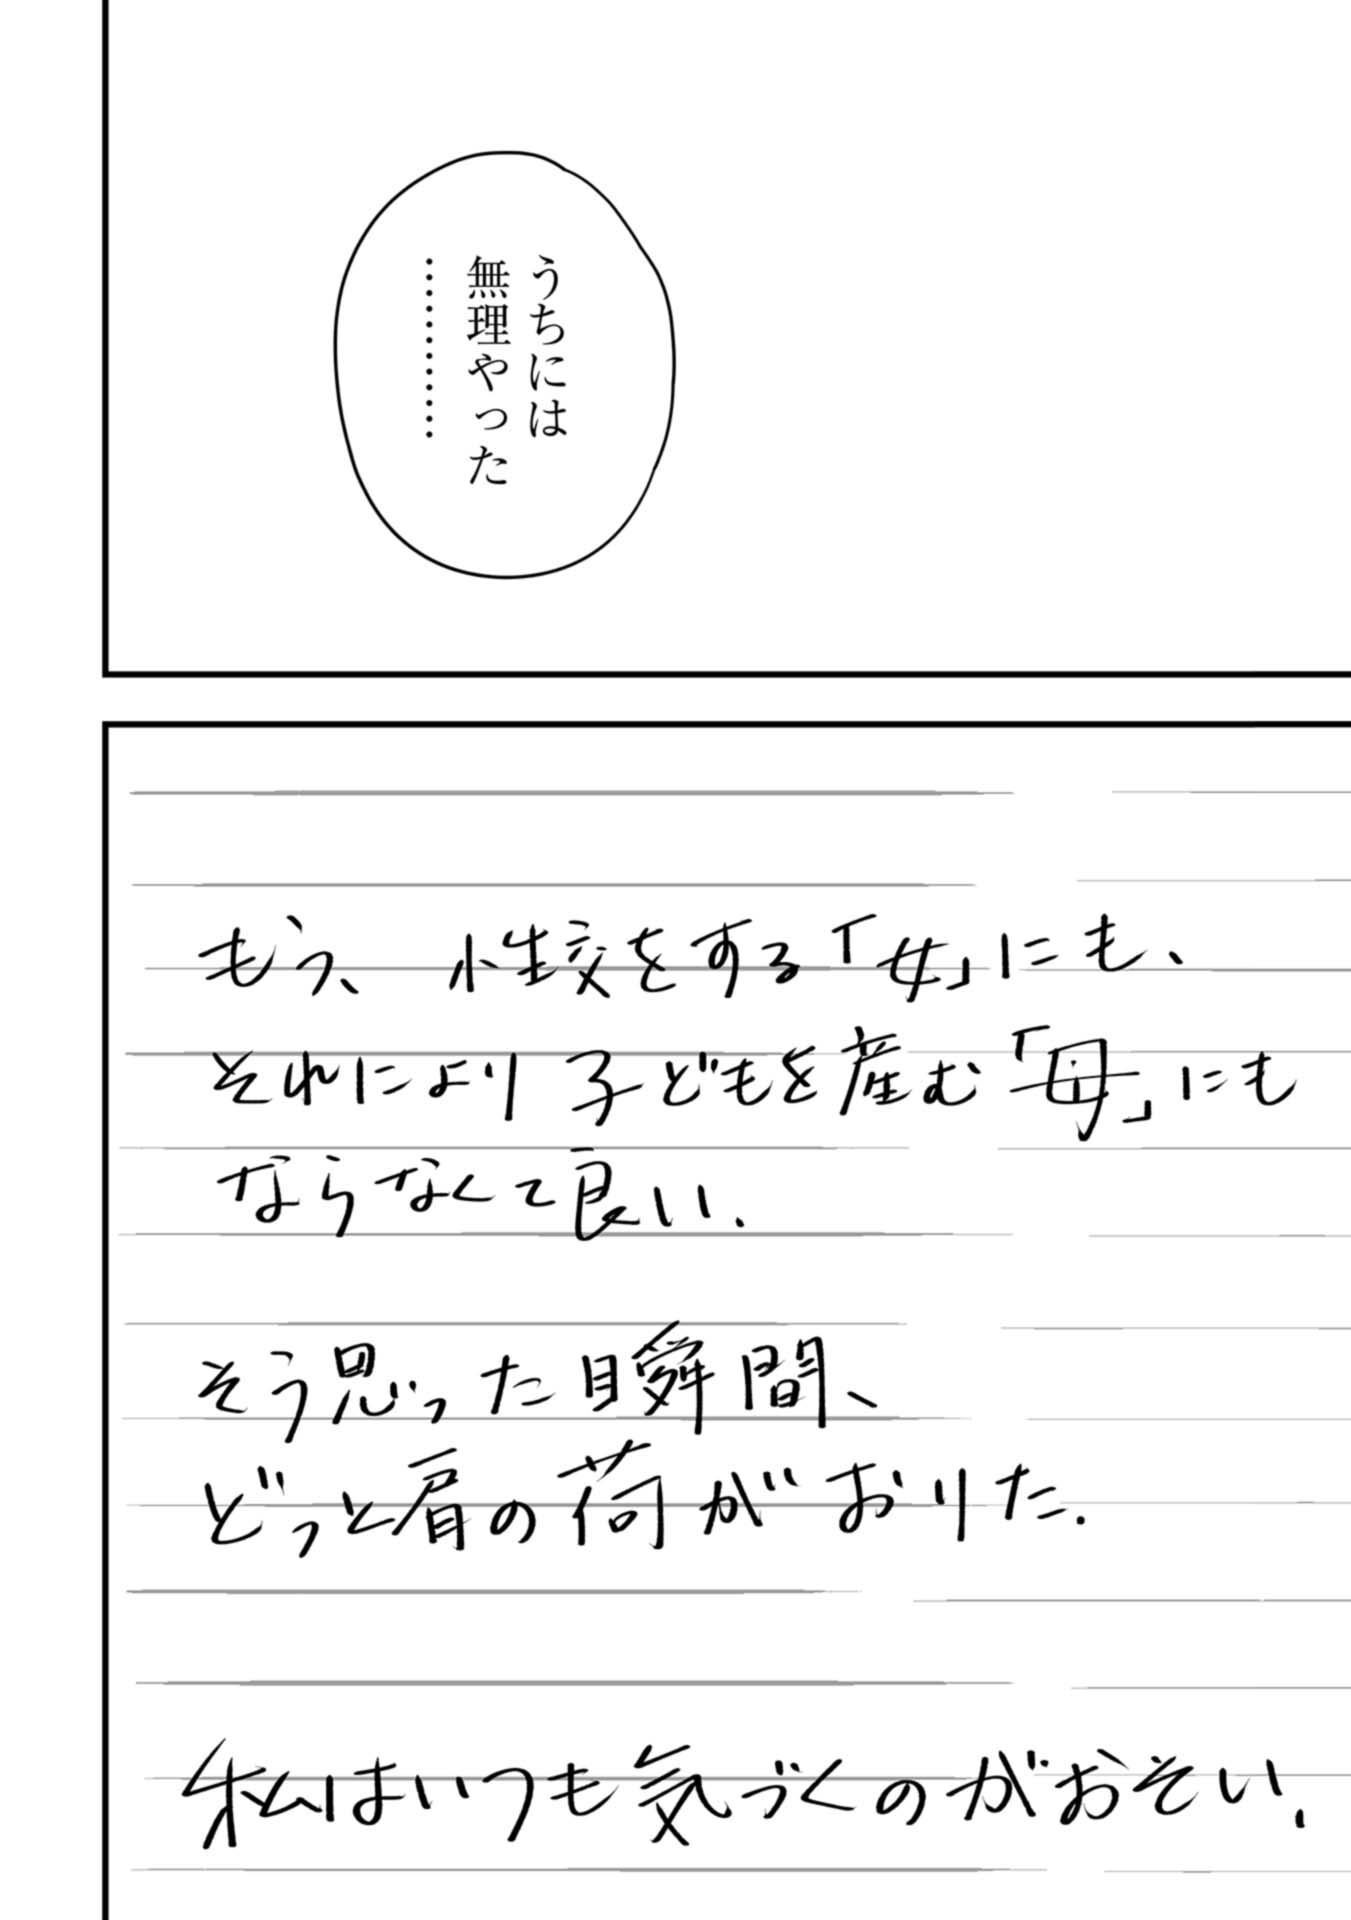 うちには
無理やった
…………
もう、性交をする「女」にも、
それにより子どもを産む「母」にも
ならなくて良い.
そう思った瞬間、
どっと肩の荷がおりた.
私はいつも気づくのがおそい.